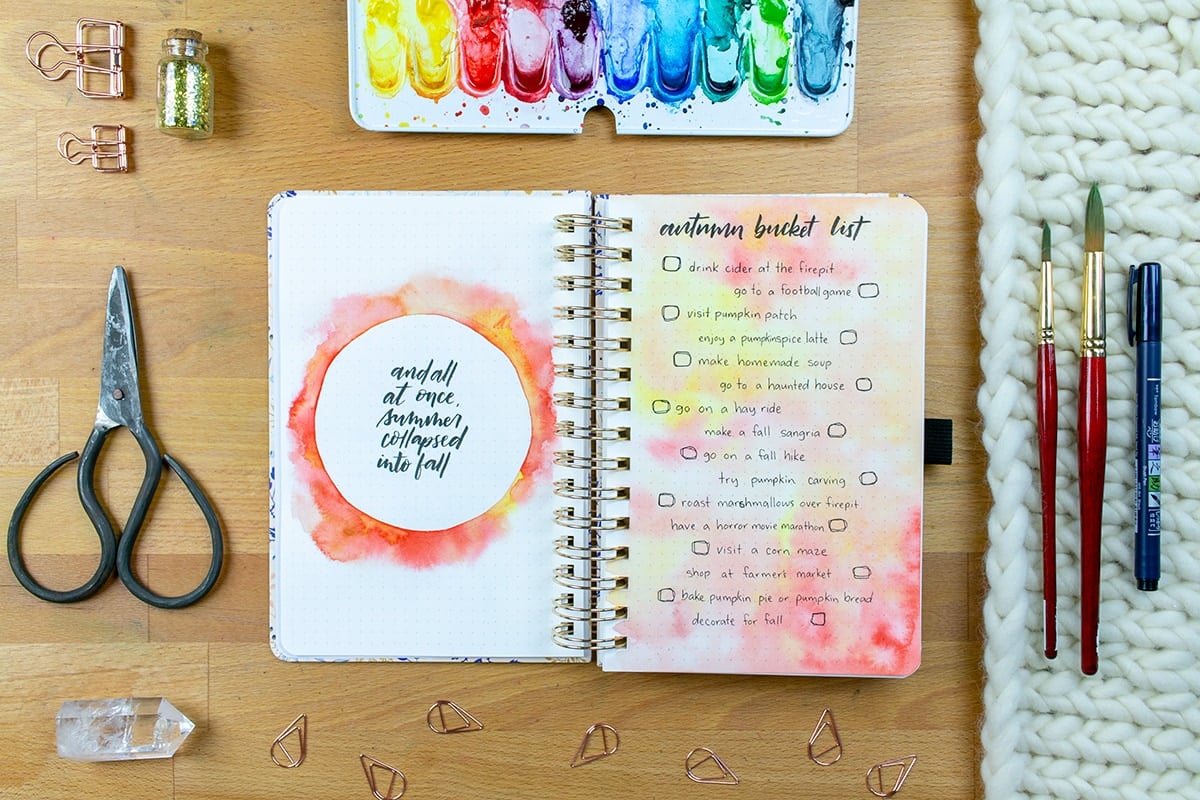 and all
at once,
summer
collapsed
into fall
autumn bucket list
drink cider at the firepit
go to a football game
visit pumpkin patch
enjoy a pumpkinspice latte
make homemade soup
go to a haunted house
go on a hay ride
make a fall sangria
go on a fall hike
try pumpkin carving
roast marshmallows over firepit
have a horror movie marathon
visit a corn maze
shop at farmer's market
bake pumpkin pie or pumpkin bread
decorate for fall